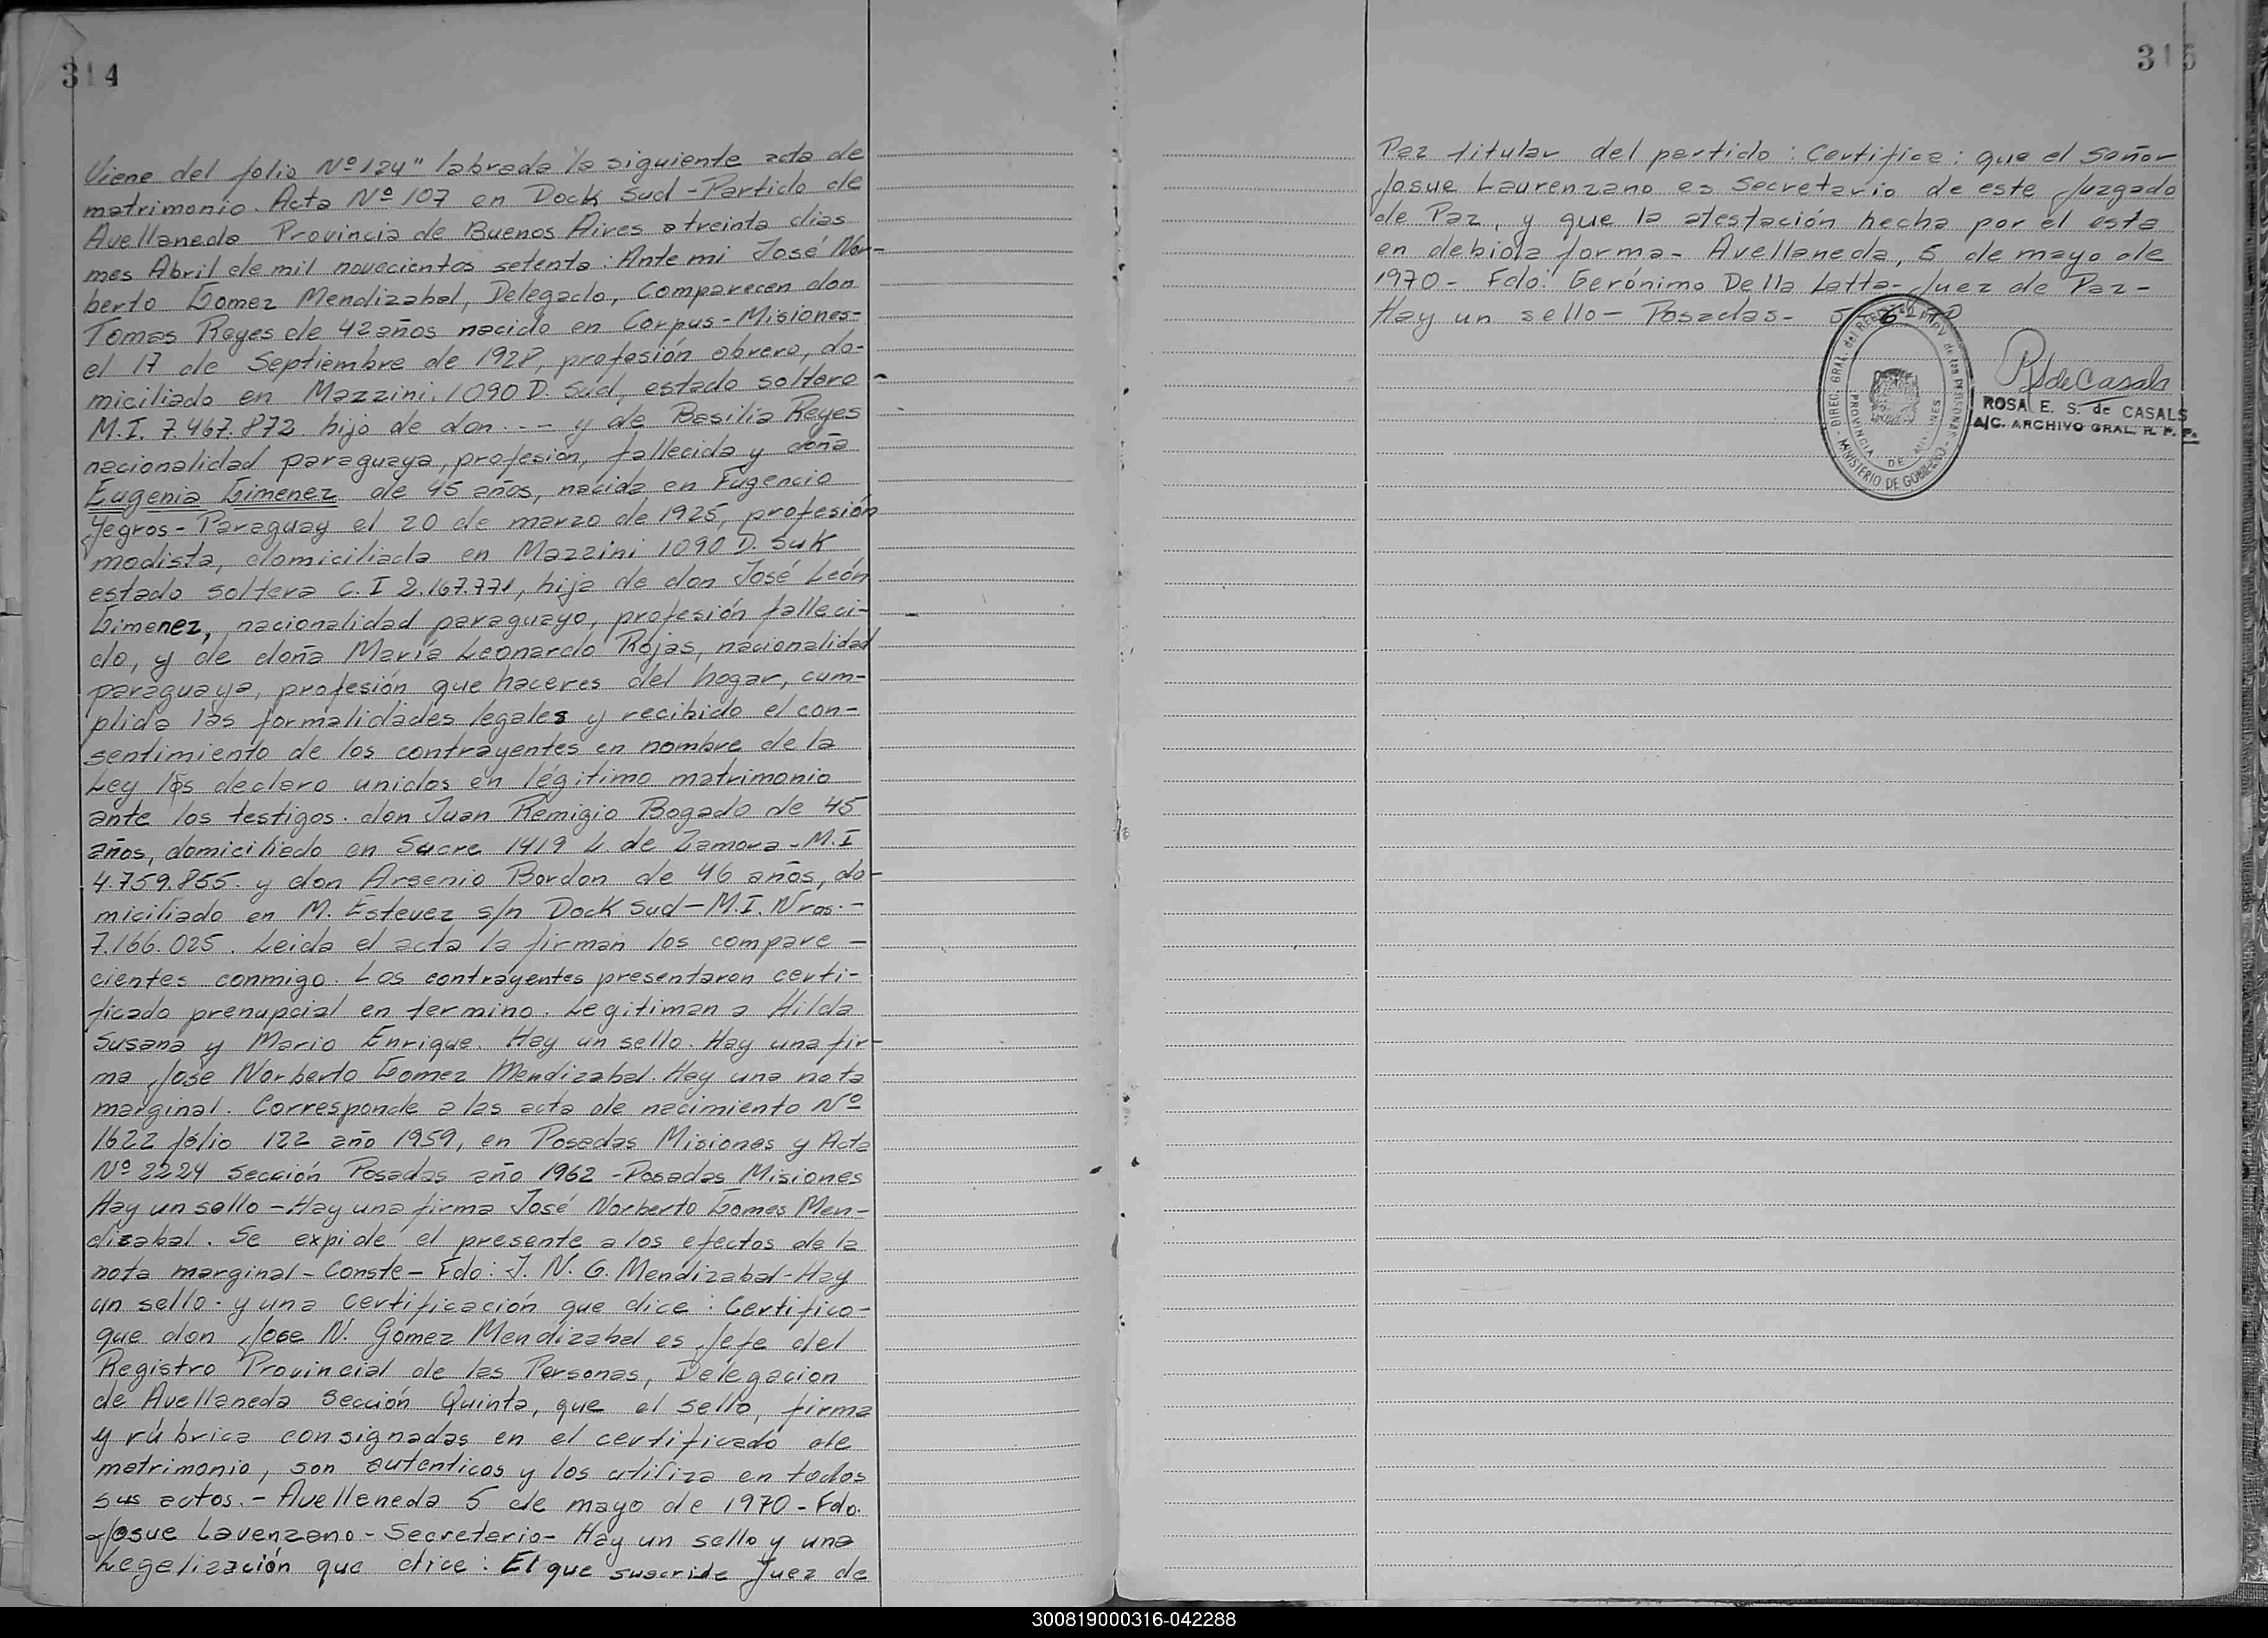 314
Viene del folio Nº 124" labrada la siguiente acta de
matrimonio. Acta Nº 107 en Dock Sud - Partido de
Avellaneda Provincia de Buenos Aires a treinta dias
mes Abril de mil novecientos setenta: Ante mi José Nor-
berto Gomez Mendizabal, Delegado, Comparecen don
Tomas Reyes de 42 años nacido en Corpus - Misiones-
el 17 de Septiembre de 1928, profesión obrero, do-
miciliado en Mazzini 1090 D. Sud, estado soltero -
M.I. 7.467.872 hijo de don --- y de Basilia Reyes
nacionalidad paraguaya, profesion, fallecida y doña
Eugenia Gimenez de 45 años, nacida en Fugencio
Yegros - Paraguay el 20 de marzo de 1925, profesión
modista, domiciliada en Mazzini 1090 D. Suk
estado soltera C.I 2.167.771, hija de don José León
Gimenez, nacionalidad paraguayo, profesión falleci-
do, y de doña María Leonardo Rojas, nacionalidad
paraguaya, profesión que haceres del hogar, cum-
plida las formalidades legales y recibido el con-
sentimiento de los contrayentes en nombre de la
Ley los declaro unidos en légitimo matrimonio
ante los testigos. don Juan Remigio Bogado de 45
años, domiciliado en Sucre 1419 L. de Zamora - M.I
4.759.855. y don Arsenio Bordon de 46 años, do-
miciliado en M. Estevez s/n Dock Sud - M.I. Nros. -
7.166.025. Leida el acta la firman los compare -
cientes conmigo. Los contrayentes presentaron certi-
ficado prenupcial en termino. Legitiman a Hilda
Susana y Mario Enrique. Hay un sello. Hay una fir-
ma Jose Norberto Gomez Mendizabal. Hay una nota
marginal. Corresponde a las acta de nacimiento Nº
1622 folio 122 año 1959, en Posadas Misiones y Acta
Nº 2224 Sección Posadas año 1962 - Posadas Misiones
Hay un sello - Hay una firma José Norberto Gomes Men-
dizabal. Se expide el presente a los efectos de la
nota marginal - Conste - Fdo: J. N. G. Mendizabal - Hay
un sello. y una certificación que dice: Certifico-
que don Jose N. Gomez Mendizabal es Jefe del
Registro Provincial de las Personas, Delegacion
de Avellaneda Sección Quinta, que el sello, firma
y rúbrica consignadas en el certificado de
matrimonio, son autenticos y los utiliza en todos
sus actos. - Avelleneda 5 de mayo de 1970 - Fdo.
Josue Lavenzano - Secretario - Hay un sello y una
Legalización que dice: El que suscribe Juez de
315
Paz titular del partido: Certifica: que el Señor
Josue Laurenzano es Secretario de este Juzgado
de Paz, y que la atestación hecha por él esta
en debida forma - Avellaneda, 5 de mayo de
1970 - Fdo: Gerónimo Della Latta - Juez de Paz -
Hay un sello - Posadas -
RSdeCasals
ROSA E. S. de CASALS
A/C. ARCHIVO GRAL. R. P. P.
DIREC. GRAL. del REG. PROV. de las PERSONAS
MINISTERIO DE GOBIERNO
PROVINCIA DE MISIONES
300819000316-042288